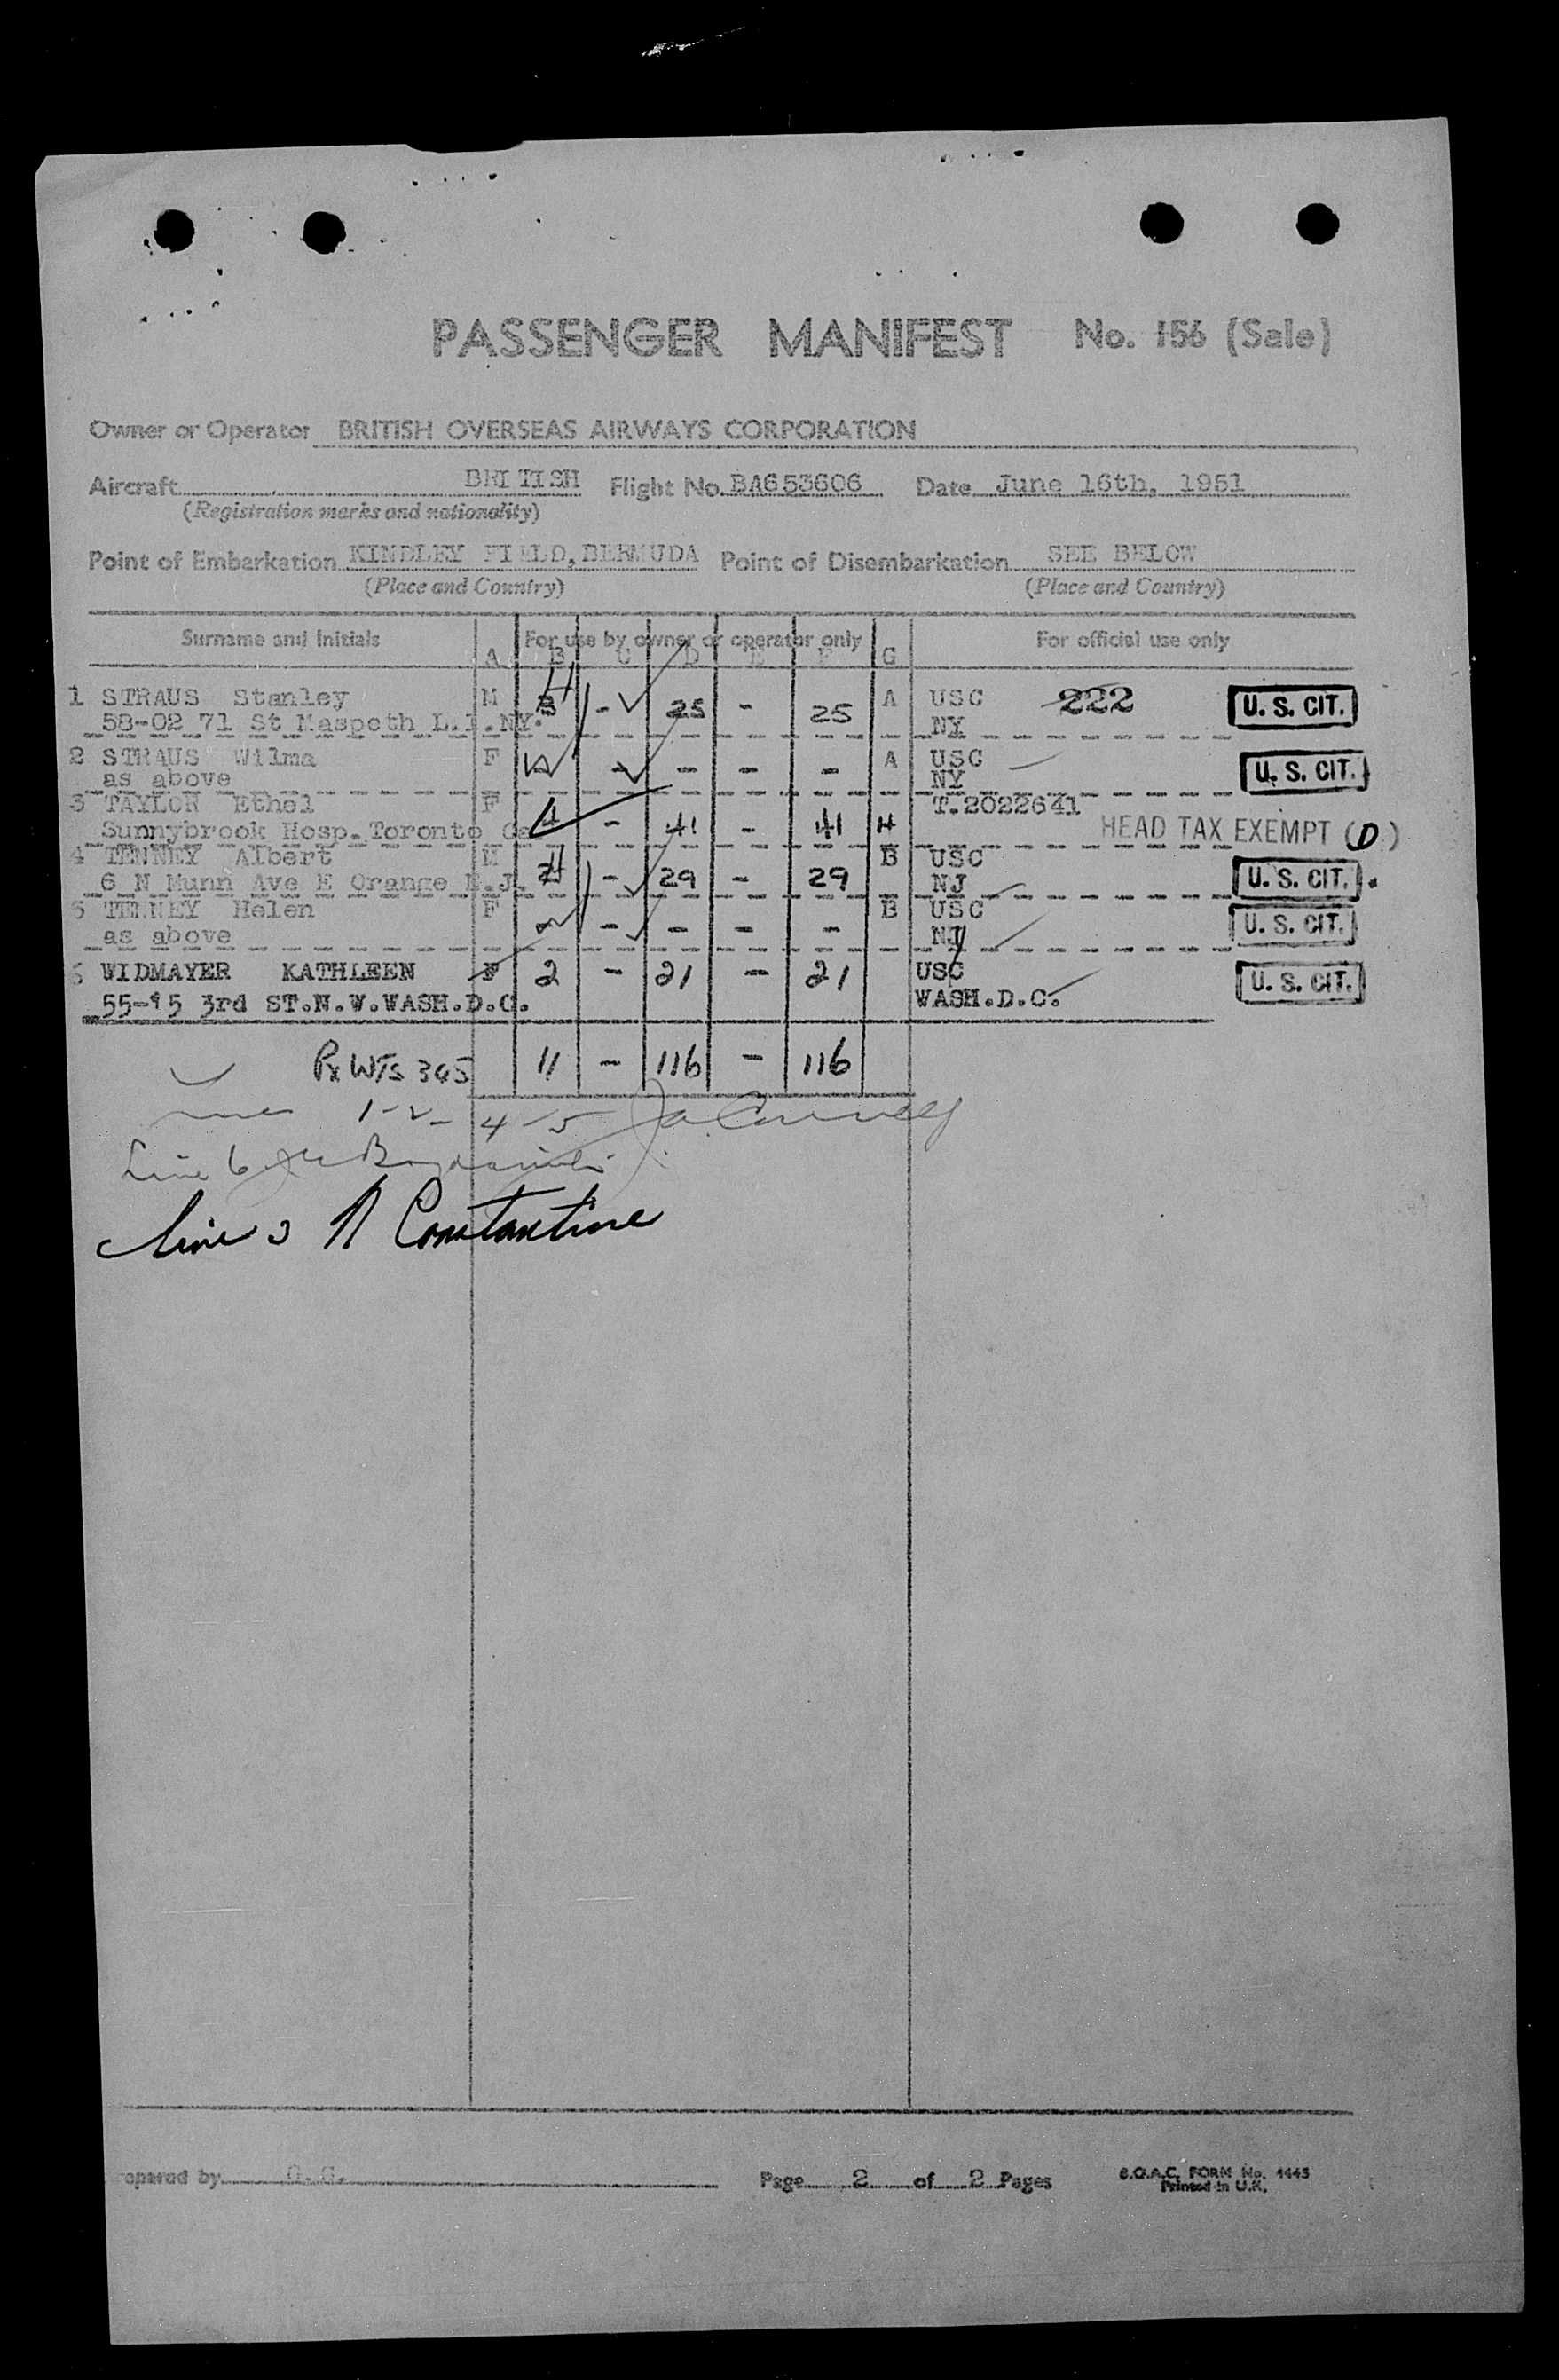 PASSENGER MANIFEST No. 156 (Sale)
Owner or Operator BRITISH OVERSEAS AIRWAYS CORPORATION
Aircraft BRITISH Flight No. BA653606 Date June 16th, 1951
(Registration marks and nationality)
Point of Embarkation KINDLEY FIELD, BERMUDA Point of Disembarkation SEE BELOW
(Place and Country) (Place and Country)
Surname and Initials For use by owner or operator only For official use only
A B C D E F G
1 STRAUS Stanley M - 25 - 25 A USC 222 U. S. CIT.
58-02 71 St Maspeth L.I.NY. NY
2 STRAUS Wilma F - - - - A USC U. S. CIT.
as above NY
3 TAYLOR Ethel F 4 - 41 - 41 H T.2022641
Sunnybrook Hosp. Toronto Ca HEAD TAX EXEMPT (D)
4 TENNEY Albert M - 29 - 29 B USC U. S. CIT.
6 N Munn Ave E Orange N.J. NJ
5 TENNEY Helen F - - - - B USC U. S. CIT.
as above NJ
6 WIDMAYER KATHLEEN F 2 - 21 - 21 USC U. S. CIT.
55-15 3rd ST.N.W.WASH.D.C. WASH.D.C.
Px WTS 345 11 - 116 - 116
1-2-4-5
Line 6
Line 3 N Constantine
Prepared by Page 2 of 2 Pages B.O.A.C. FORM No. 1445
Printed in U.K.